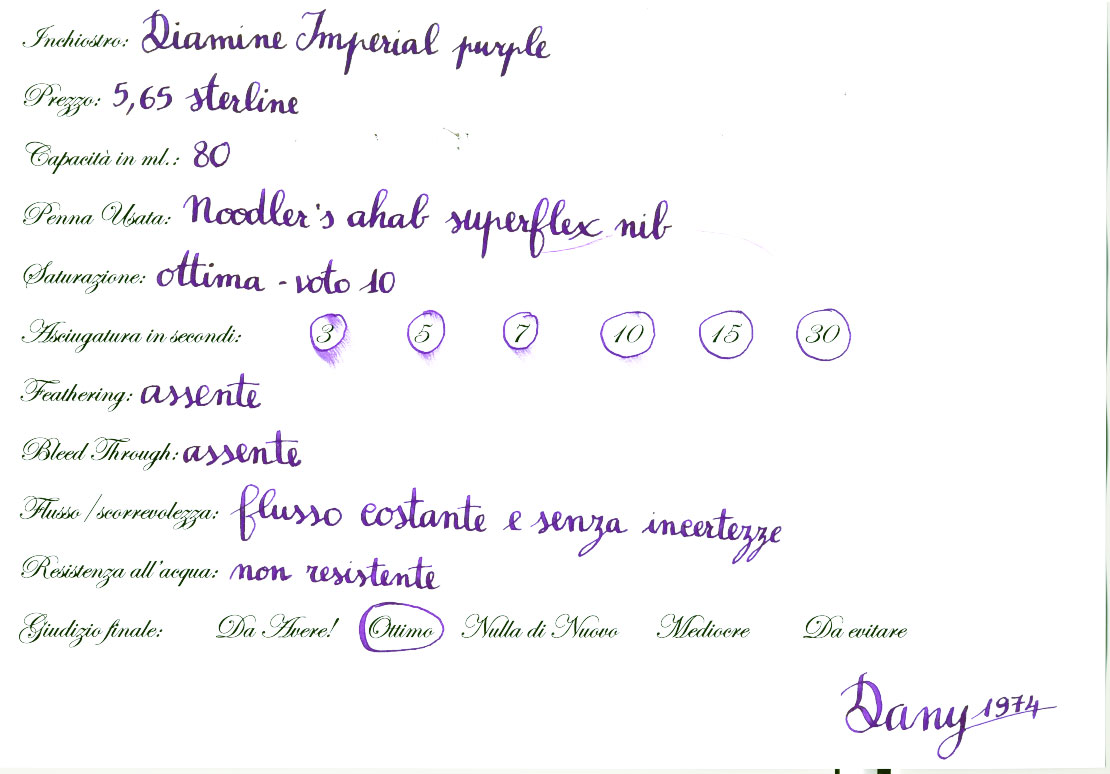 Inchiostro: Diamine Imperial purple
Prezzo: 5,65 sterline
Capacità in ml.: 80
Penna Usata: Noodler's ahab superflex nib
Saturazione: ottima - voto 10
Asciugatura in secondi: 3 5 7 10 15 30
Feathering: assente
Bleed Through: assente
Flusso/scorrevolezza: flusso costante e senza incertezze
Resistenza all'acqua: non resistente
Giudizio finale: Da Avere! Ottimo Nulla di Nuovo Mediocre Da evitare
Dany 1974